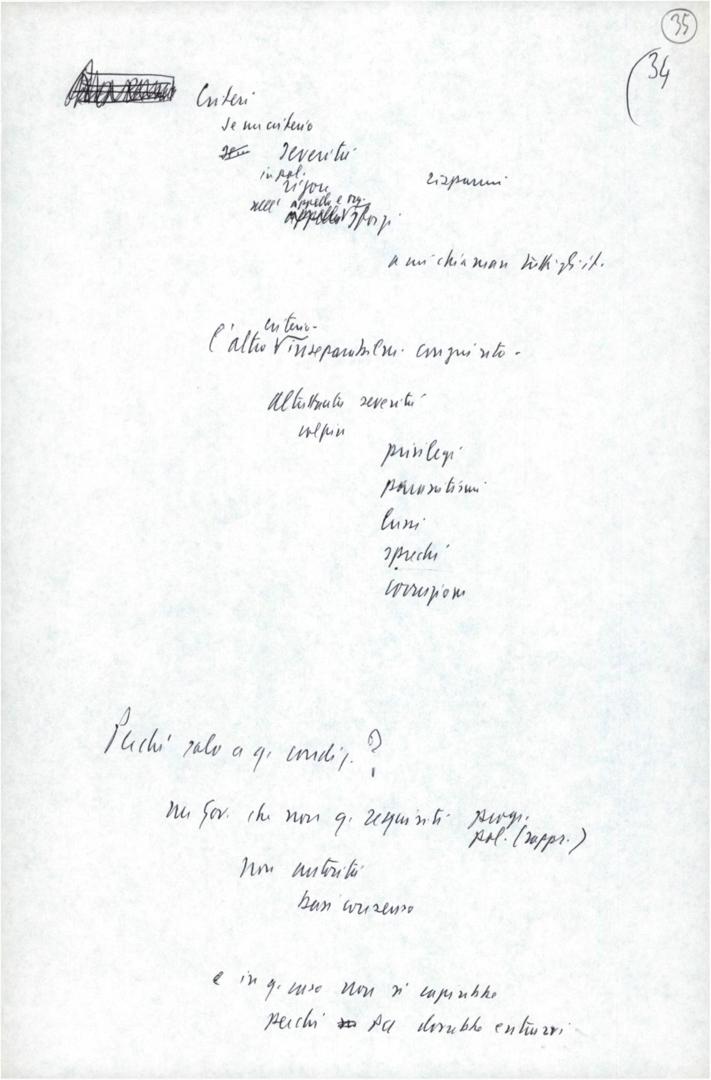 35
34
Criteri
Se un criterio
severità
in pol.
rigore risparmi
nell' appello e org.
a cui chiamiam tutti gli it.
criterio
l'altro inseparabilm. congiunto -
Altrettanta severità
colpire
privilegi
parassitismi
lussi
sprechi
corruzioni
Perché solo a q. condiz.?
un Gov. che non q. requisiti progr.
pol. (rappr.)
non autorità
basi consenso
e in q. caso non si capirebbe
perché PCI dovrebbe entrarvi